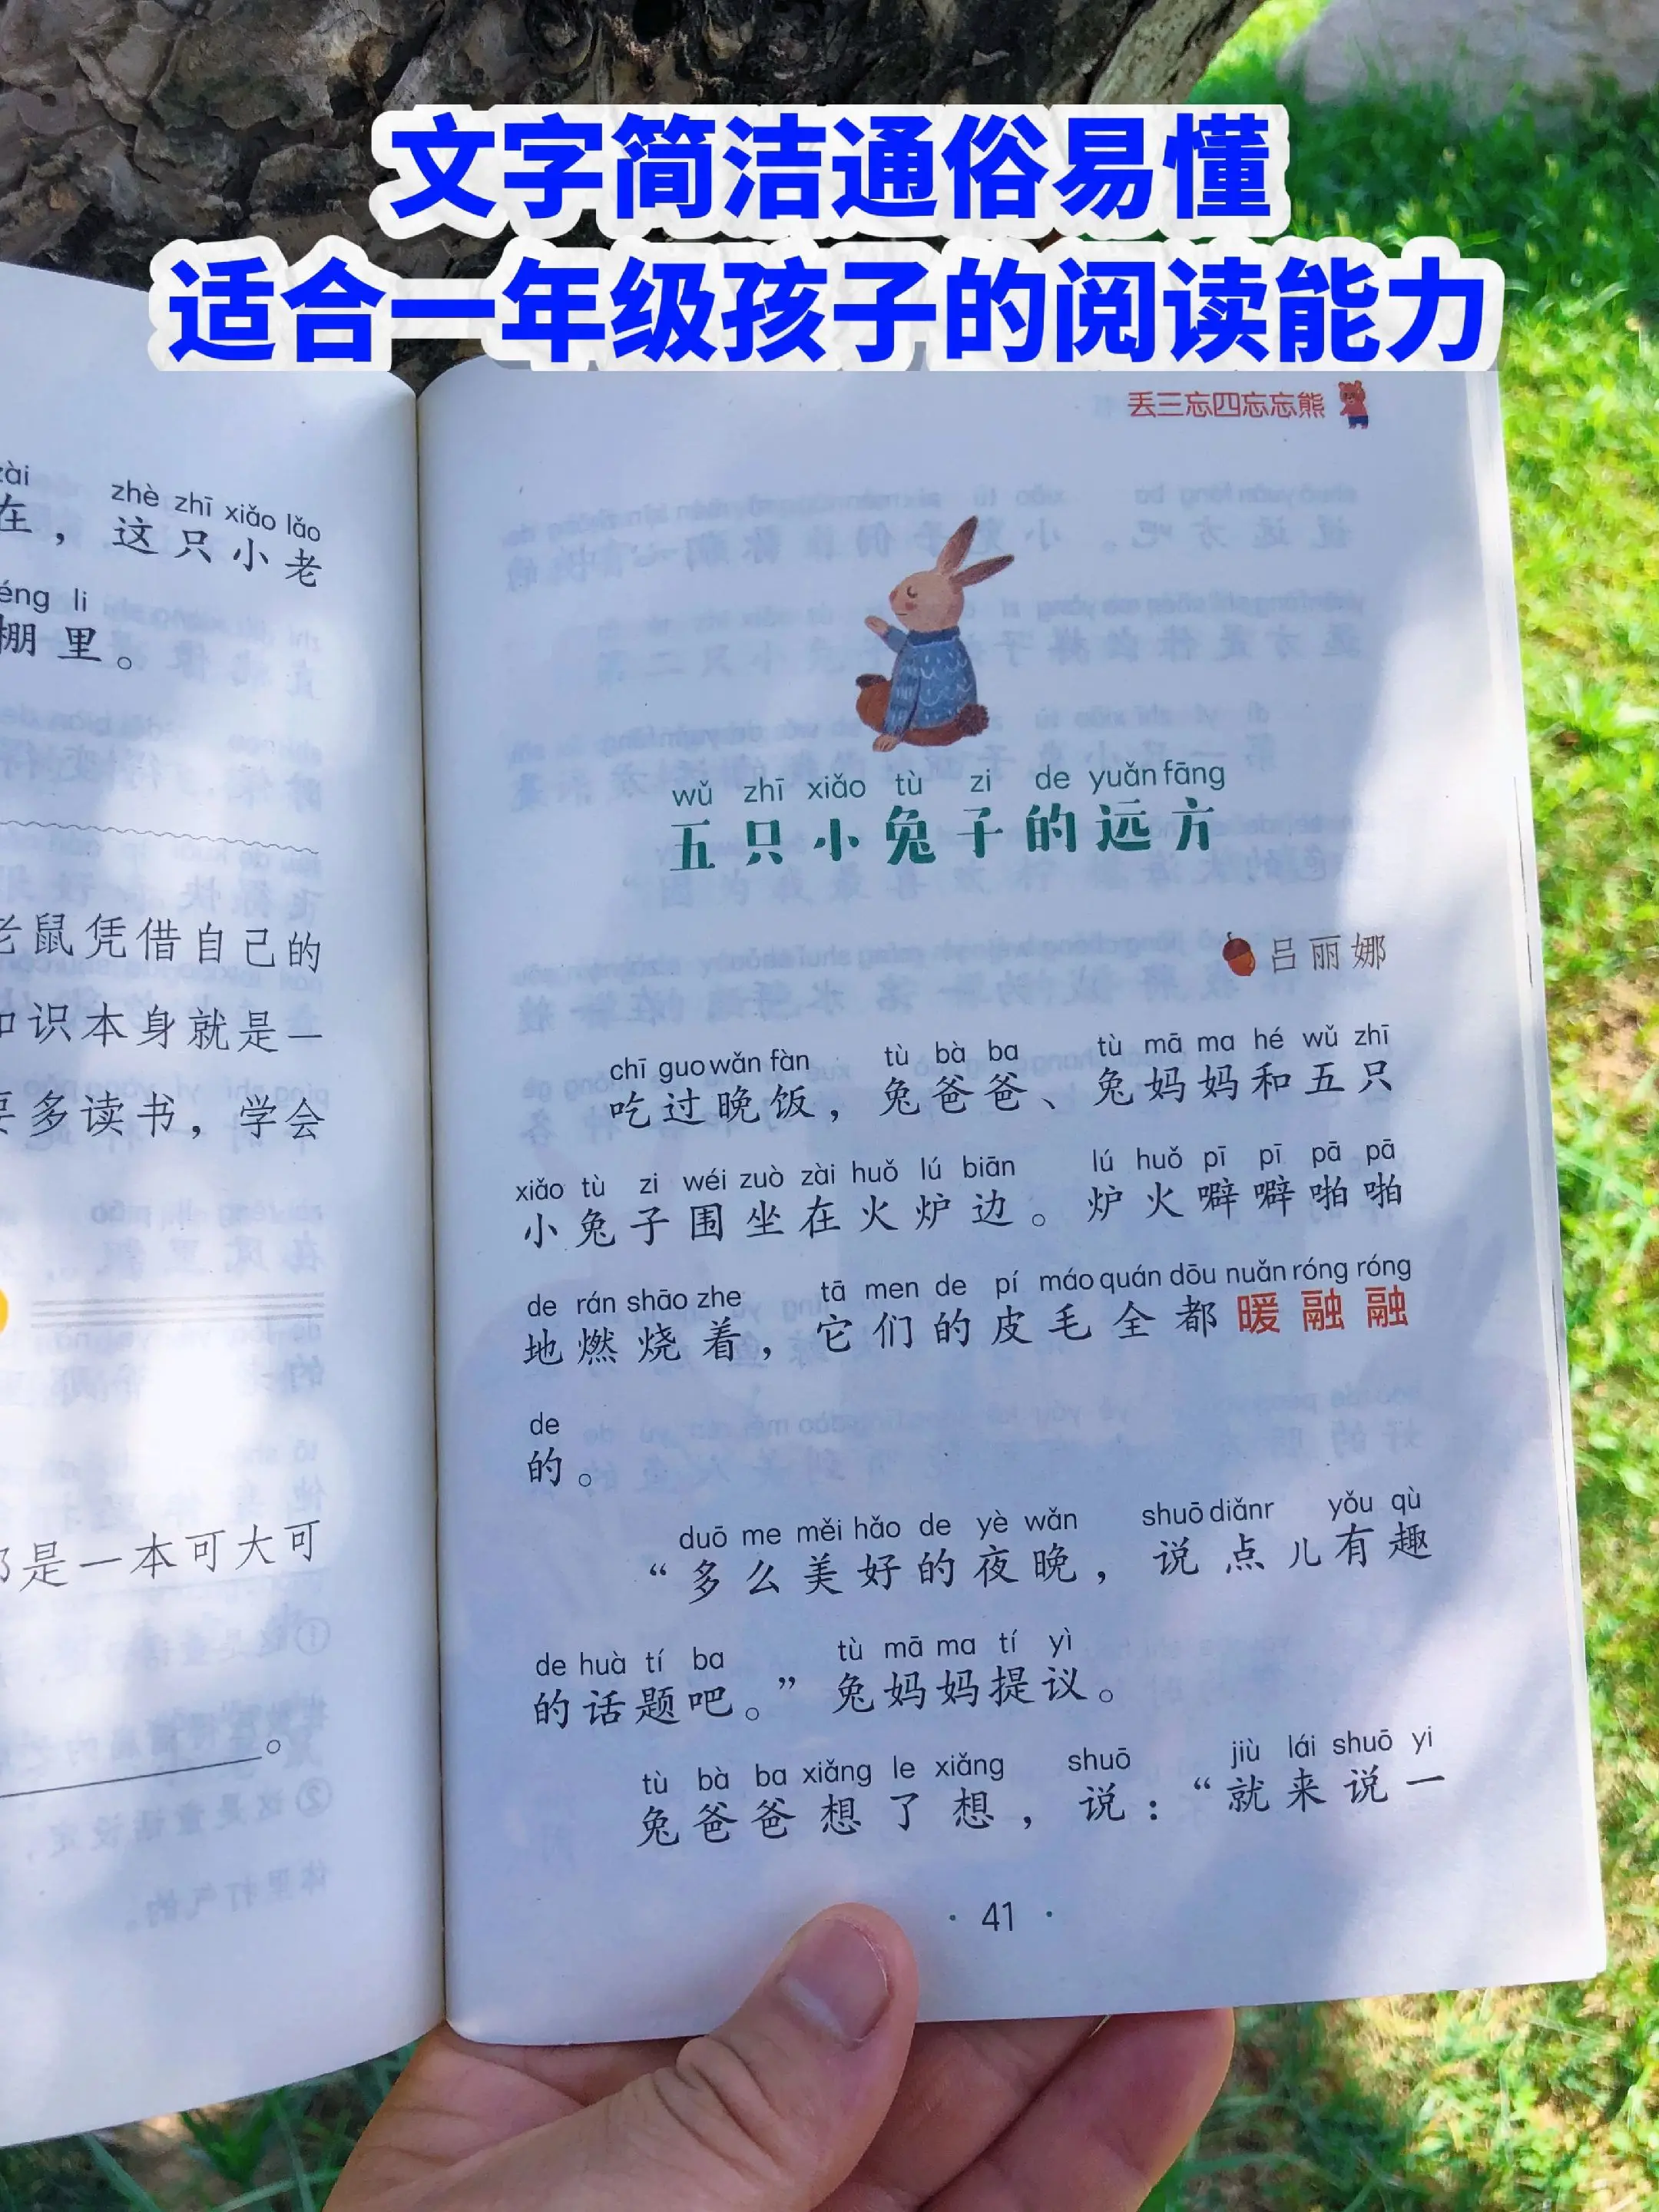 文字简洁通俗易懂
适合一年级孩子的阅读能力
zhè zhī xiǎo lǎo
在，这只小老
li
棚里。
老鼠凭借自己的
识本身就是一
要多读书，学会
是一本可大可
。
丢三忘四忘忘熊
wǔ zhī xiǎo tù zi de yuǎn fāng
五只小兔子的远方
吕丽娜
chī guo wǎn fàn tù bà ba tù mā ma hé wǔ zhī
吃过晚饭，兔爸爸、兔妈妈和五只
xiǎo tù zi wéi zuò zài huǒ lú biān lú huǒ pī pī pā pā
小兔子围坐在火炉边。炉火噼噼啪啪
de rán shāo zhe tā men de pí máo quán dōu nuǎn róng róng
地燃烧着，它们的皮毛全都暖融融
de
的。
duō me měi hǎo de yè wǎn shuō diǎnr yǒu qù
“多么美好的夜晚，说点儿有趣
de huà tí ba tù mā ma tí yì
的话题吧。”兔妈妈提议。
tù bà ba xiǎng le xiǎng shuō jiù lái shuō yi
兔爸爸想了想，说：“就来说一
· 41 ·